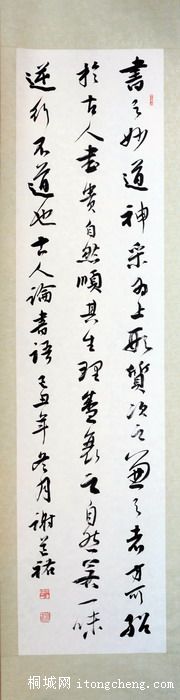 書之妙道神采為上形質次之兼之者方可紹
於古人書貴自然順其生理蓋裹之自然若一味
逆行不道也古人論書語己丑年冬月謝益祐
桐城网 itongcheng.com